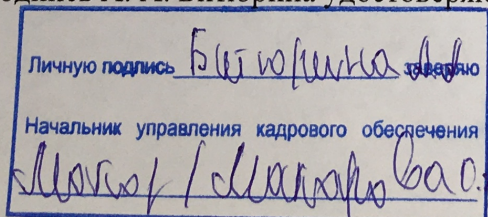 Личную подпись Битюрина А.А заверяю
Начальник управления кадрового обеспечения
/ Макарова О.